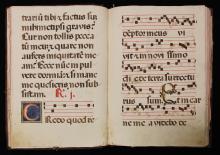 trarium tibi: et factus sum
mihimetipsi gravis?
Cur non tollis pecca
tum meum: et quare non
aufers iniquitatem me
am? Ecce nunc in pul
vere dormiam: si mane
me quesieris non subsi
stam. R.
Credo quod re
demptor meus vi
vit: in novissimo
die de terra surrectu
rus sum. Et in car
ne mea videbo de